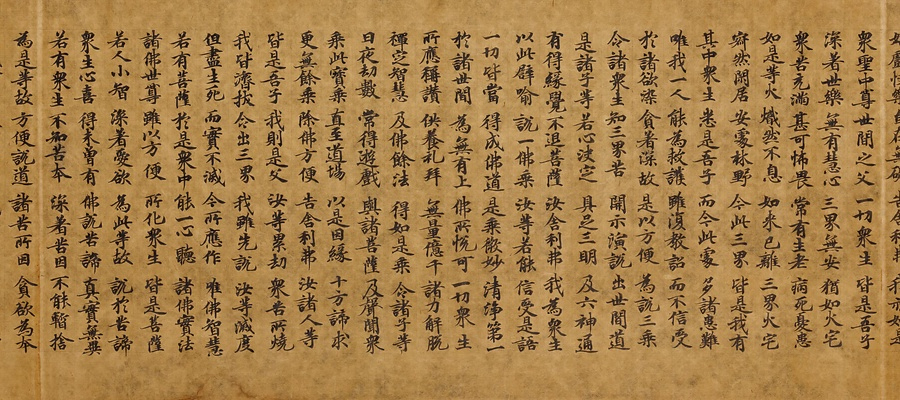 衆聖中尊 世間之父 一切衆生 皆是吾子
深著世樂 無有慧心 三界無安 猶如火宅
衆苦充滿 甚可怖畏 常有生老 病死憂患
如是等火 熾然不息 如來已離 三界火宅
寂然閑居 安處林野 今此三界 皆是我有
其中衆生 悉是吾子 而今此處 多諸患難
唯我一人 能為救護 雖復教詔 而不信受
於諸欲染 貪著深故 是以方便 為說三乘
令諸衆生 知三界苦 開示演說 出世間道
是諸子等 若心決定 具足三明 及六神通
有得緣覺 不退菩薩 汝舍利弗 我為衆生
以此譬喻 說一佛乘 汝等若能 信受是語
一切皆當 得成佛道 是乘微妙 清淨第一
於諸世間 為無有上 佛所悅可 一切衆生
所應稱讚 供養礼拜 無量億千 諸力解脫
禪定智慧 及佛餘法 得如是乘 令諸子等
日夜劫數 常得遊戲 與諸菩薩 及聲聞衆
乘此寶乘 直至道場 以是因緣 十方諦求
更無餘乘 除佛方便 告舍利弗 汝諸人等
皆是吾子 我則是父 汝等累劫 衆苦所燒
我皆濟拔 令出三界 我雖先說 汝等滅度
但盡生死 而實不滅 今所應作 唯佛智慧
若有菩薩 於是衆中 能一心聽 諸佛實法
諸佛世尊 雖以方便 所化衆生 皆是菩薩
若人小智 深著愛欲 為此等故 說於苦諦
衆生心喜 得未曾有 佛說苦諦 真實無異
若有衆生 不知苦本 深著苦因 不能暫捨
為是等故 方便說道 諸苦所因 貪欲為本